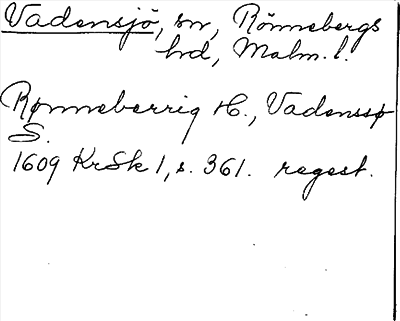 Vadensjö, sn, Rönnebergs
hd, Malm. l.
Rønneberrig H., Vadenssø
S.
1609 KrSk 1, s. 361. regest.